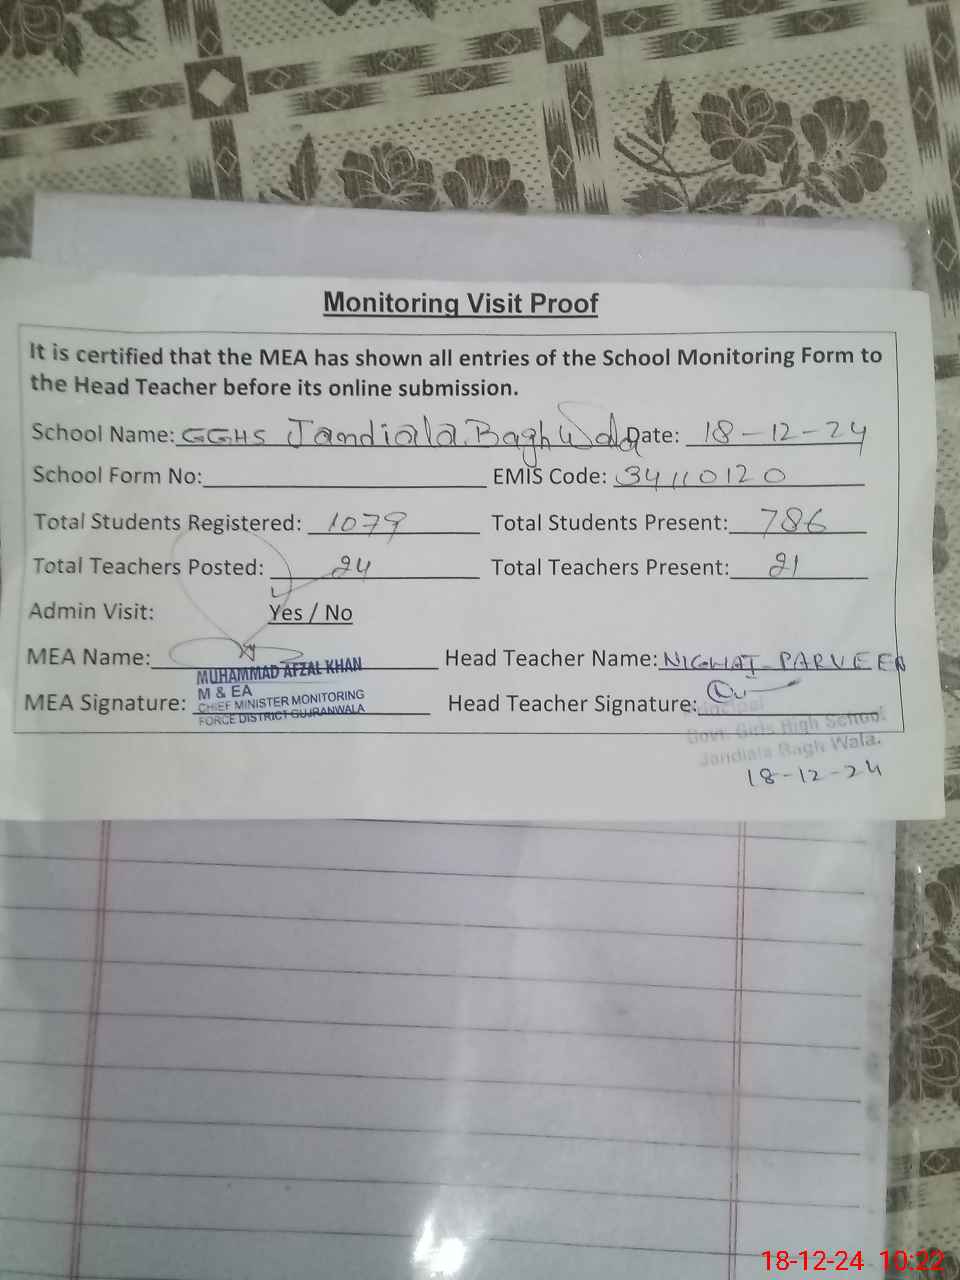 Monitoring Visit Proof
It is certified that the MEA has shown all entries of the School Monitoring Form to
the Head Teacher before its online submission.
School Name: GGHS Jandiala Bagh Wala Date: 18-12-24
School Form No: EMIS Code: 34110120
Total Students Registered: 1079 Total Students Present: 786
Total Teachers Posted: 24 Total Teachers Present: 21
Admin Visit: Yes / No
MEA Name: Head Teacher Name: NIGHAT PARVEEN
MUHAMMAD AFZAL KHAN
M & EA
MEA Signature: CHIEF MINISTER MONITORING Head Teacher Signature:
FORCE DISTRICT GUJRANWALA
Principal
Govt. Girls High School
Jandiala Bagh Wala.
18-12-24
18-12-24 10:22